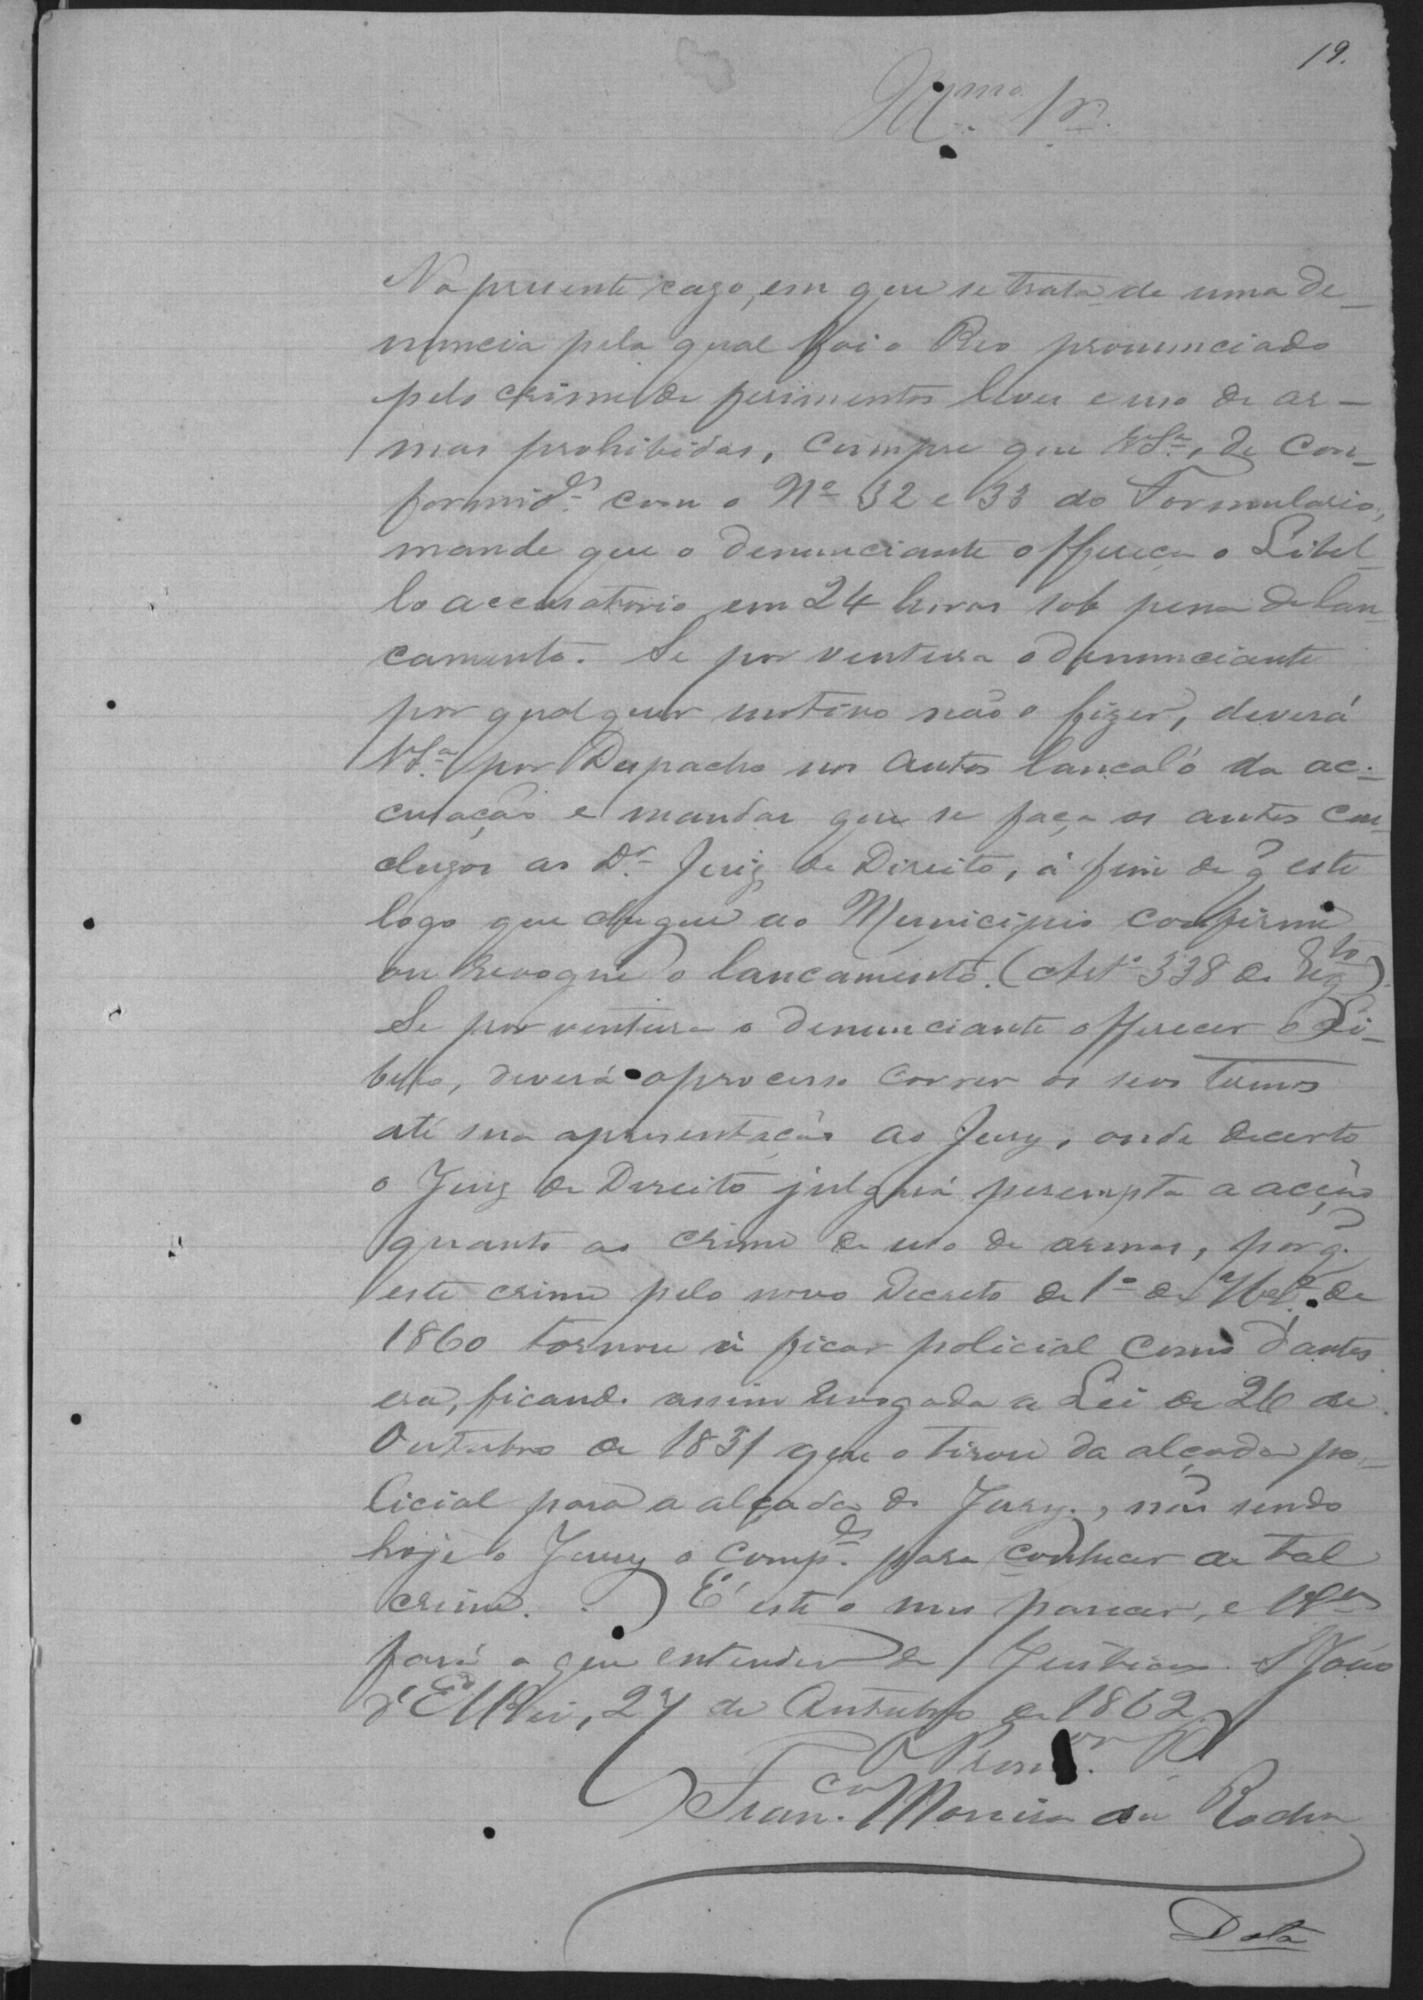 19.
Illmo. Sr.
No presente cazo, em que se trata de uma de-
nuncia pela qual foi o Reo pronunciado
pelo crime de ferimentos leves e uso de ar-
mas prohibidas, cumpre que VSa., de con-
formide. com o No 32 e 33 do Formulario,
mande que o denunciante offereça o Libel-
lo accusatorio em 24 horas sob pena de lan-
camento. Se por ventura o denunciante
por qualquer motivo não o fizer, deverá
VSa. por Despacho nos autos lancal-o da ac-
cusação e mandar que se faça os autos con-
cluzos ao Dr. Juiz de Direito, á fim de q̃ este
logo que chegue ao Municipio confirme
ou revogue o lancamento. (Arto. 338 do Regto).
Se por ventura o denunciante offerecer o Li-
bello, deverá o processo correr os seos termos
até sua apresentação ao Jury, onde decerto
o Juiz de Direito julgará perempta a acção
quanto ao crime de uso de armas, porq̃.
este crime pelo novo Decreto de 1o de 7bro. de
1860 tornou á ficar policial como d'antes
era, ficando assim revogada a Lei de 26 de
Outubro de 1831 que o tirou da alçada po-
licial para a alçada do Jury, não sendo
hoje o Jury o compe. para conhecer de tal
crime. É este o meu parecer, e VSa.
fará o que entender de Justiça. S João
d'El Rei, 27 de Outubro de 1862
O Promor. P.
Franco. Moreira da Rocha
Data